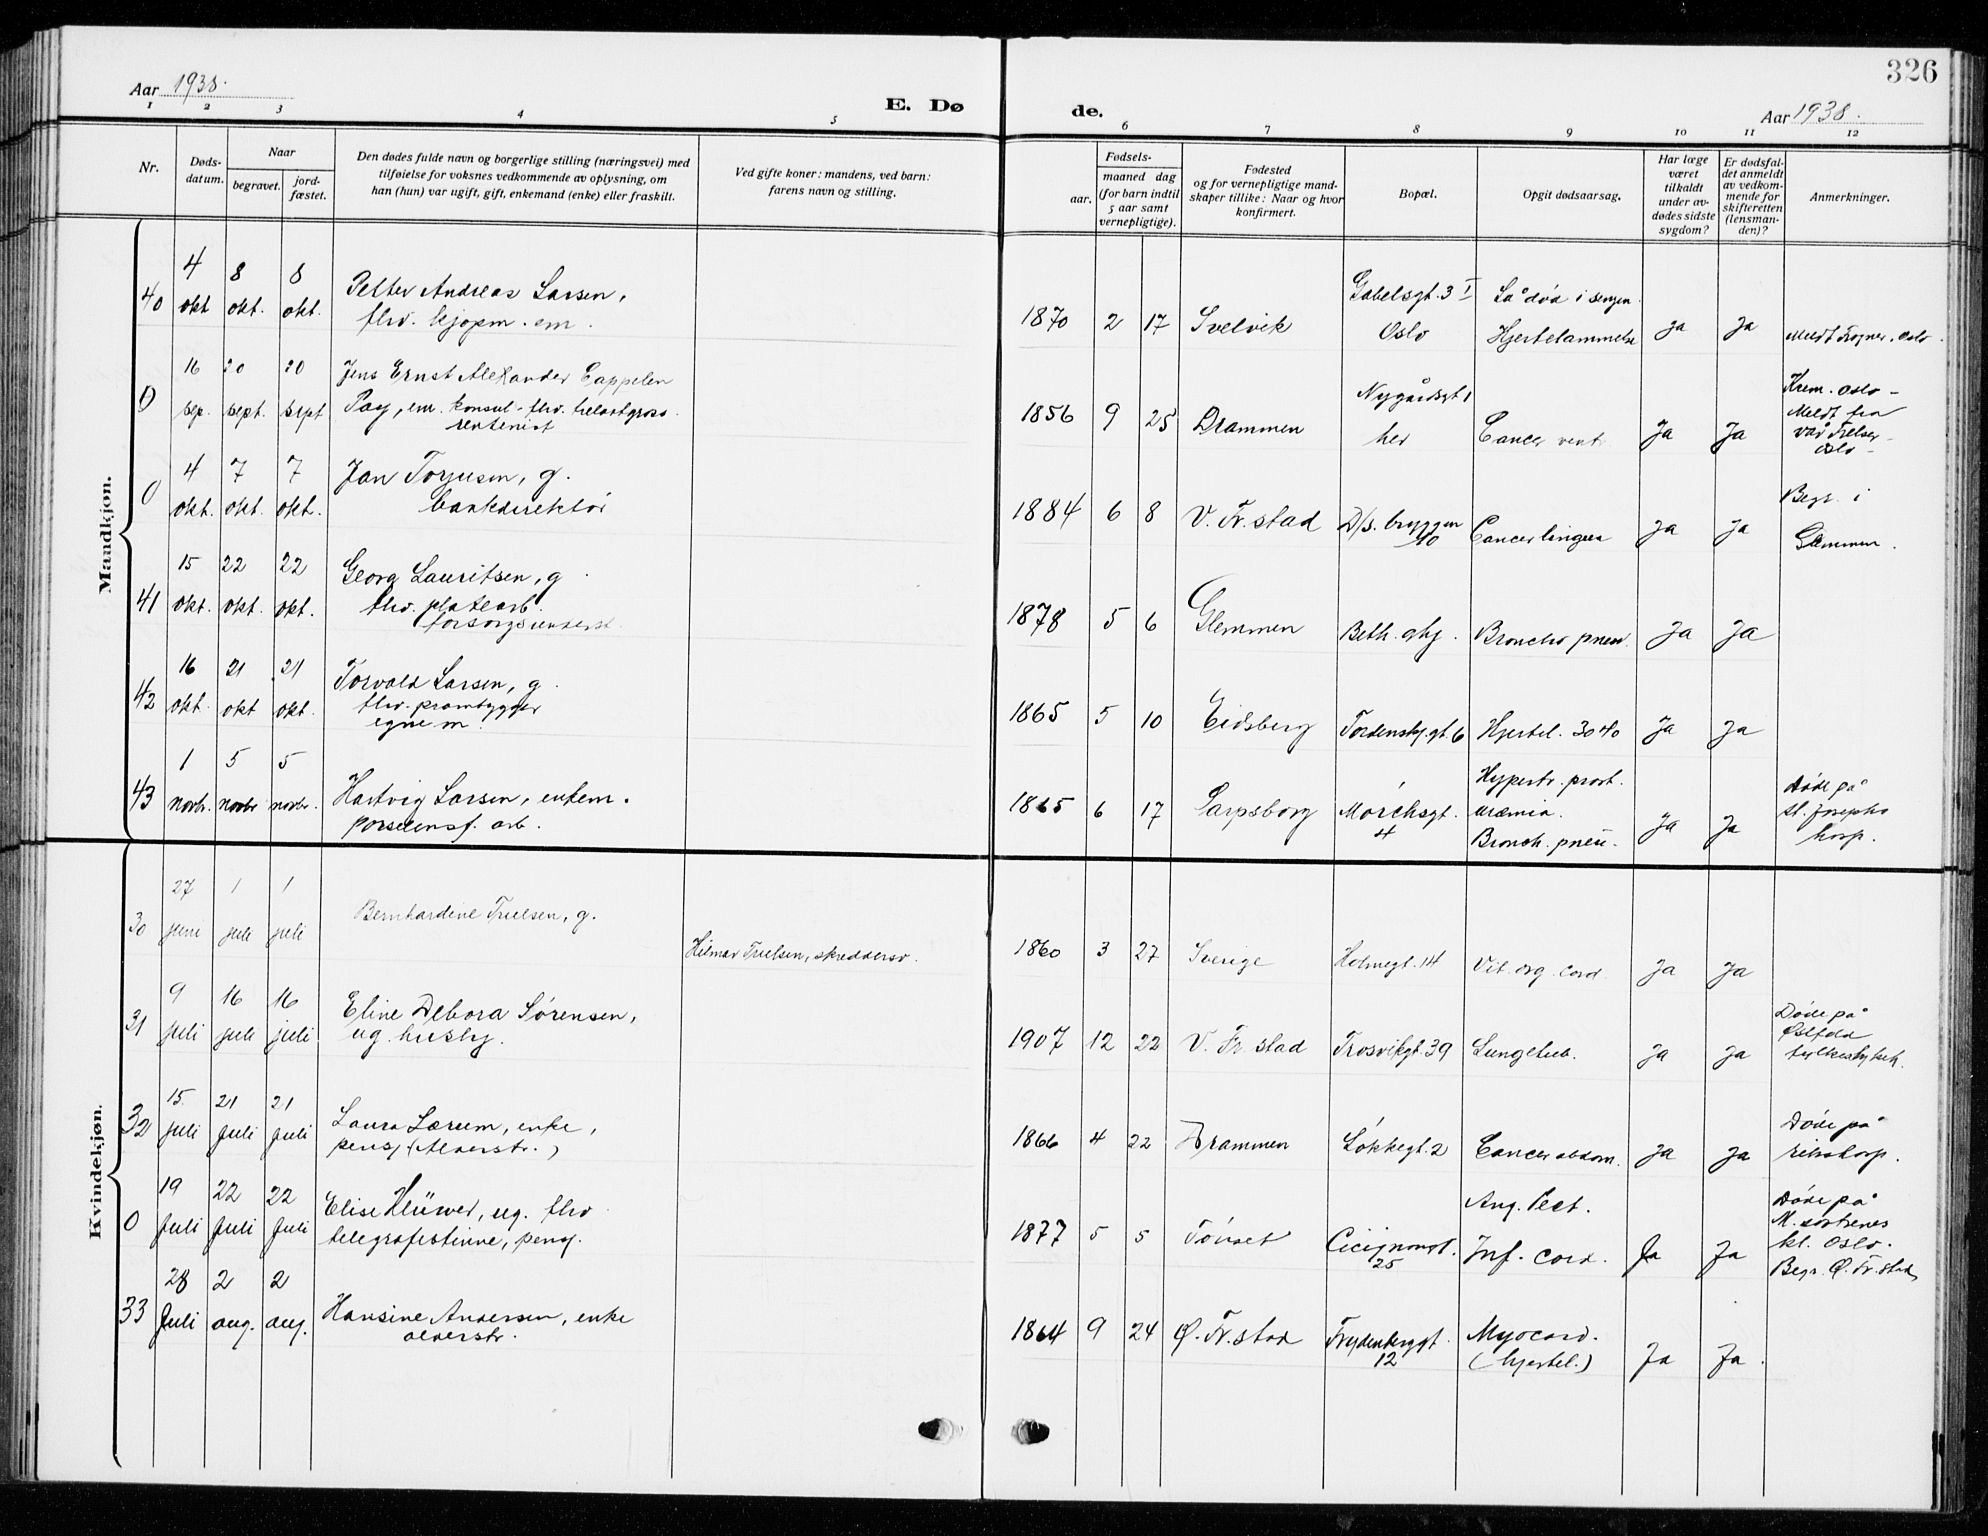 326
Aar 1938.
E. Dø
de.
Aar 1938.
1 2 3 4 5 6 7 8 9 10 11 12
Nr.
Døds-
datum.
Naar
begravet.
jord-
fæstet.
Den dødes fulde navn og borgerlige stilling (næringsvei) med
tilføielse for voksnes vedkommende av oplysning, om
han (hun) var ugift, gift, enkemand (enke) eller fraskilt.
Ved gifte koner: mandens, ved barn:
farens navn og stilling.
aar.
Fødsels-
maaned dag
(for barn indtil
5 aar samt
vernepligtige).
Fødested
og for vernepligtige mand-
skaper tillike: Naar og hvor
konfirmert.
Bopæl.
Opgit dødsaarsag.
Har læge
været
tilkaldt
under av-
dødes sidste
sygdom?
Er dødsfal-
det anmeldt
av vedkom-
mende for
skifteretten
(lensman-
den)?
Anmerkninger.
Mandkjøn.
4 8 8 Petter Andreas Larsen, Gabelsgt. 3 I Lå død i sengen.
40 okt okt. okt. fhv. kjøpm. em. 1870 2 17 Svelvik Oslo Hjertelammelse ja ja Meldt Frogner, Oslo.
16 20 20 Jens Ernst Alexander Cappelen Nygårdsgt 1 Krem. Oslo -
0 sep. sept. sept Pay, em. konsul - fhv. trelastgross. 1856 9 25 Drammen her Cancer ventr. Ja Ja Meldt fra
rentenist Vår Frelser
Oslo -
4 7 7 Jan Torjusen, g. Begr. i
0 okt. okt. okt. bankdirektør 1884 6 8 V. Fr.stad D/s. bryggen 10 Cancer lingua Ja Ja Glemmen.
15 22 22 Georg Lauritsen, g.
41 okt. okt. okt. fhv. platearb. 1878 5 6 Glemmen Beth. ghj. Broncho pneu. Ja Ja
forsorgsunderst.
16 21 21 Torvald Larsen, g.
42 okt. okt okt. fhv. prambygger 1865 5 10 Eidsberg Tordenskj.gt. 6 Hjertel. Ja Ja
egne m.
1 5 5 Hypertr. prost. Døde på
43 novbr. novbr novbr. Hartvig Larsen, enkem. 1865 6 17 Sarpsborg Mørchsgt. uræmia. Ja Ja St. Josephs
porselensf. arb. 4 Bronch. pneu. hosp.
Kvindekjøn.
27 1 1 Bernhardine Truelsen, g.
30 juni juli juli Hilmar Truelsen, skreddersv. 1860 3 27 Sverige Holmegt. 14 Vit. org. cord. Ja Ja
9 16 16 Eline Debora Sørensen, Døde på
31 juli juli juli. ug. husby. 1907 12 22 V. Fr.stad Trosvikgt. 39 Lungetub. Ja Ja Østfold
fylkessykeh.
15 21 21 Laura Lærum, enke, Døde på
32 juli juli juli pensj. (Alderstr.) 1866 4 22 Drammen Løkkegt. 2 Cancer abdom. Ja Ja rikshosp.
19 22 22 Elise Klüwer, ug. fhv. Ang. Pect. Døde på
0 Juli Juli Juli telegrafistinne, pensj. 1877 5 5 Tønset Cicignongt. 25 Inf. cord. Ja Ja M. søstrenes
kl. Oslo.
Begr. Ø. Fr.stad
28 2 2
33 Juli aug. aug. Hansine Andersen, enke 1864 9 24 Ø. Fr.stad Frydenberggt. Myocard. Ja Ja.
alderstr. 12 (hjertel.)